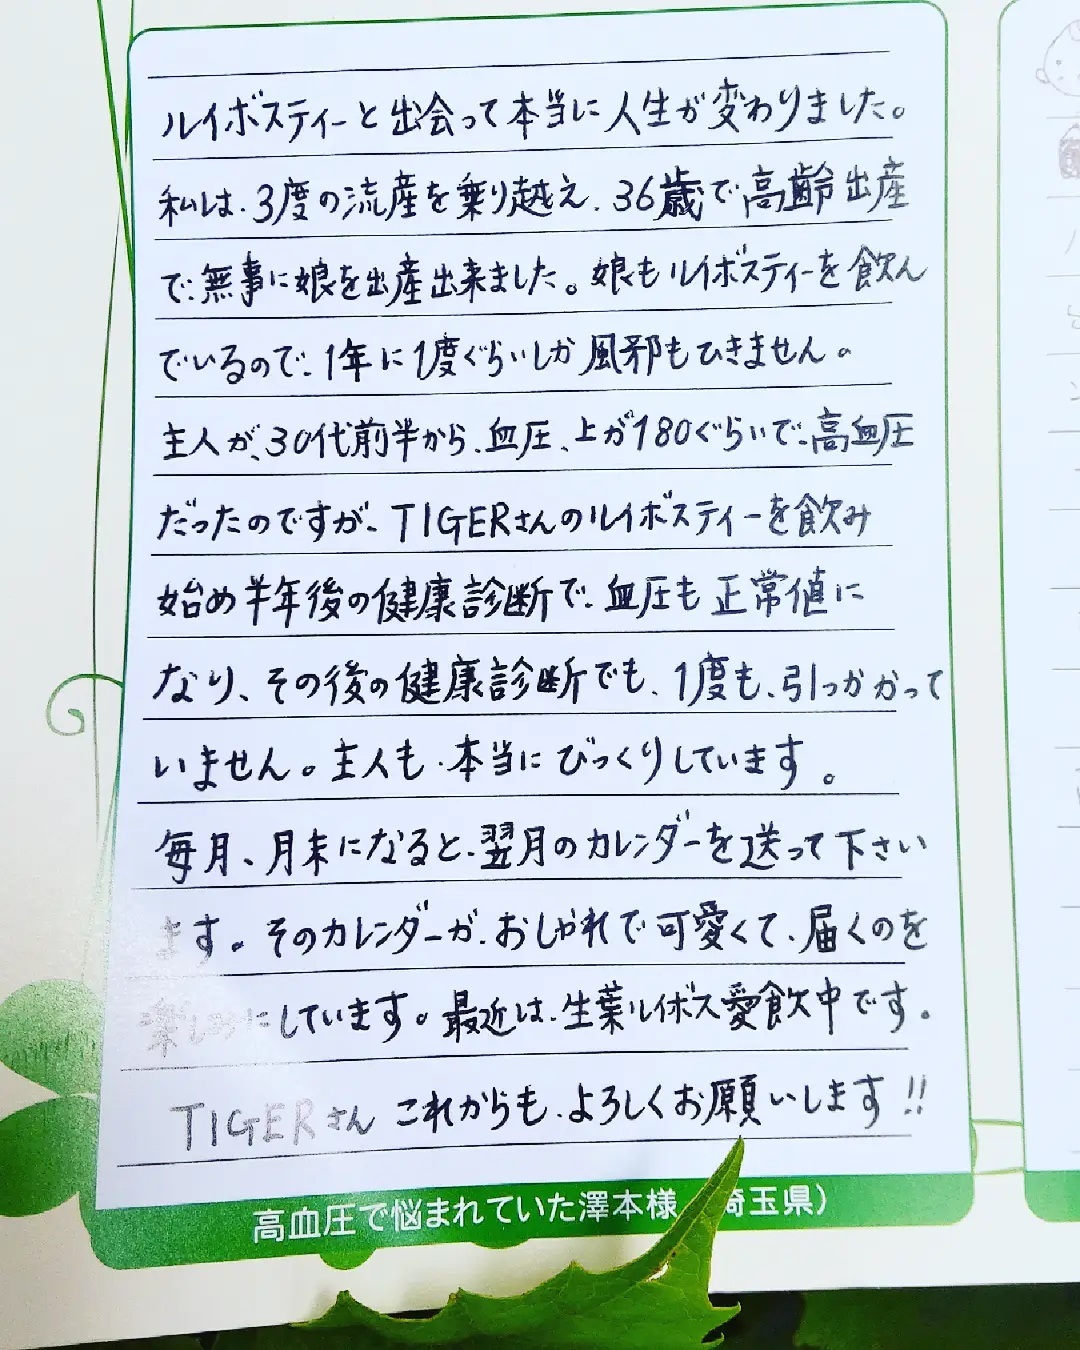 ルイボスティーと出会って本当に人生が変わりました。
私は、3度の流産を乗り越え、36歳で高齢出産
で、無事に娘を出産出来ました。娘もルイボスティーを飲ん
でいるので、1年に1度ぐらいしか風邪もひきません。
主人が、30代前半から、血圧、上が180ぐらいで、高血圧
だったのですが、TIGERさんのルイボスティーを飲み
始め半年後の健康診断で、血圧も正常値に
なり、その後の健康診断でも、1度も、引っかかって
いません。主人も、本当にびっくりしています。
毎月、月末になると、翌月のカレンダーを送って下さい
ます。そのカレンダーが、おしゃれで可愛くて、届くのを
楽しみにしています。最近は、生葉ルイボス愛飲中です。
TIGERさんこれからも、よろしくお願いします!!
高血圧で悩まれていた澤本様 埼玉県）